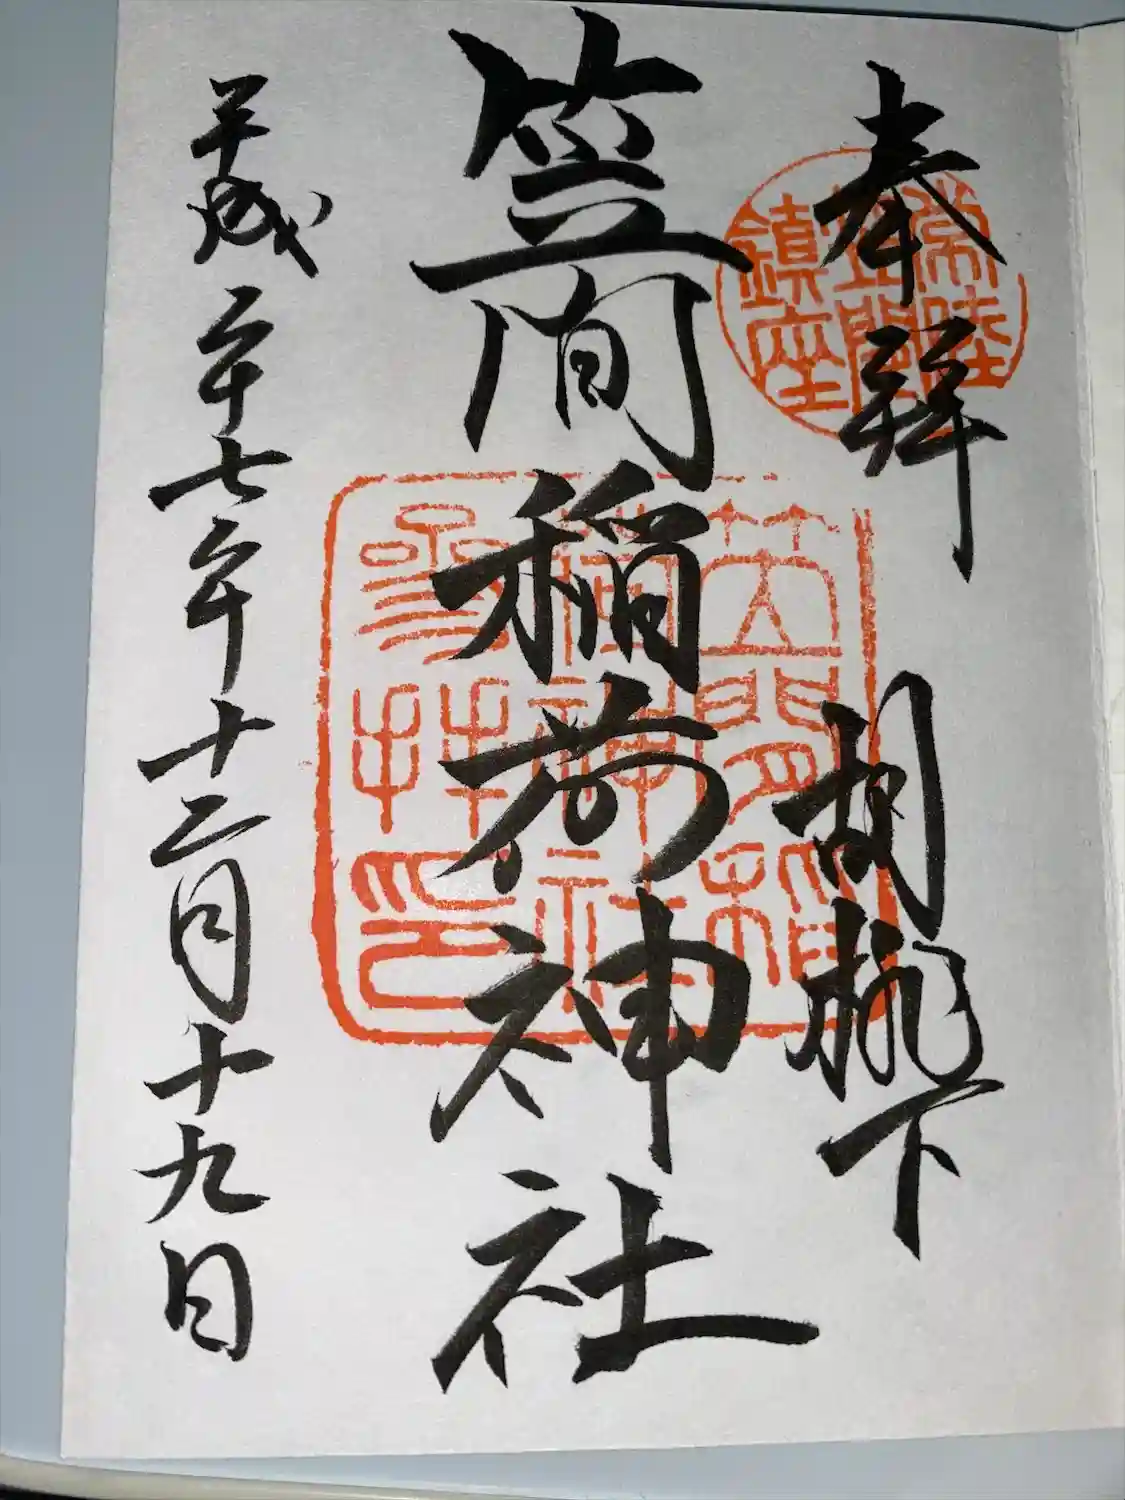 奉拝
胡桃下
笠間稲荷神社
平成二十七年十二月十九日
常陸
笠間
鎮座
笠間稲
荷神社
参拝印